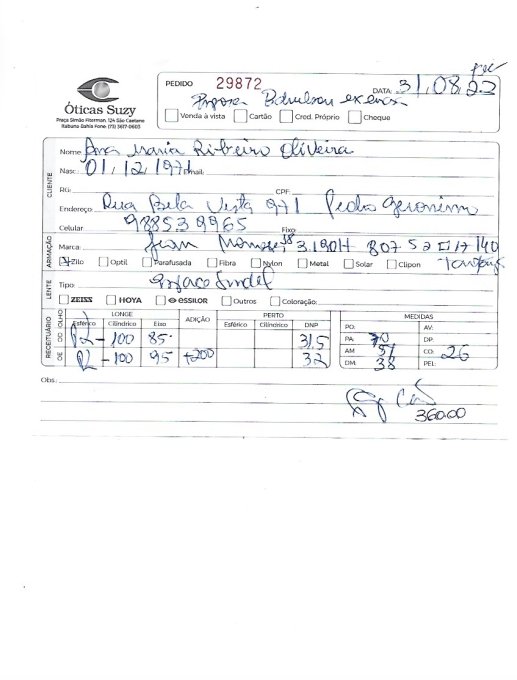 Óticas Suzy
Praça Simão Fiterman, 124 São Caetano
Itabuna Bahia Fone: (73) 3617-0603
PEDIDO 29872 DATA: 31,08,22
Venda à vista Cartão Cred. Próprio Cheque
CLIENTE
Nome: Ana Maria Ribeiro Oliveira
Nasc.: 01/12/1971 Email:
RG: CPF:
Endereço: Rua Bela Vista 971 Pedro Geronimo
Celular 988539965 Fixo
ARMAÇÃO
Marca: Jean 3.190H 807 52 17 140
Zilo Optil Parafusada Fibra Nylon Metal Solar Clipon
LENTE
Tipo:
ZEISS HOYA essilor Outros Coloração:
RECEITUÁRIO
LONGE ADIÇÃO PERTO MEDIDAS
OLHO Esférico Cilíndrico Eixo Esférico Cilíndrico DNP
OD PL -100 85 31.5
OE PL -100 95 +200 32
PO: AV:
PA: 70 DP:
AM 51 CO: 26
DM: 38 PEL:
Obs.:
360.00